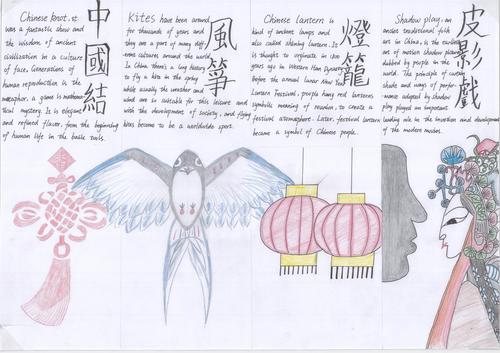 Chinese knot. It
was a fantastic show and
the wisdom of ancient
civilization in a culture
of face. Generations of
human reproduction is the
metaphor, a game is mathema-
tical mystery. It is elegant
and refined flavor, from the beginning
of human life in the basic tools.
中國結
Kites have been around
for thousands of years and
they are a part of many diff-
erent cultures around the world.
In China, there's a long history
to fly a kite in the spring
while usually the weather and
wind are so suitable for this leisure and
with the development of society, and flying
kites become to be a worldwide sport.
風箏
Chinese lantern is
kind of ancient lamps and
also called shining lantern. It
is thought to originate in
years ago in Western Han Dynasty
before the annual lunar New Year
Lantern Festival, people hang red lanterns
symbolic meaning of reunion, to create a
festival atmosphere. Later, festival lantern
became a symbol of Chinese people.
燈籠
Shadow play, an
ancient traditional folk
art in China, is the earliest
art of motion shadow pictures
dubbed by people in the
world. The principle of
shade and ways of perfor-
mance adopted by shadow
play played an important
leading role in the invention and development
of the modern movies.
皮影戲